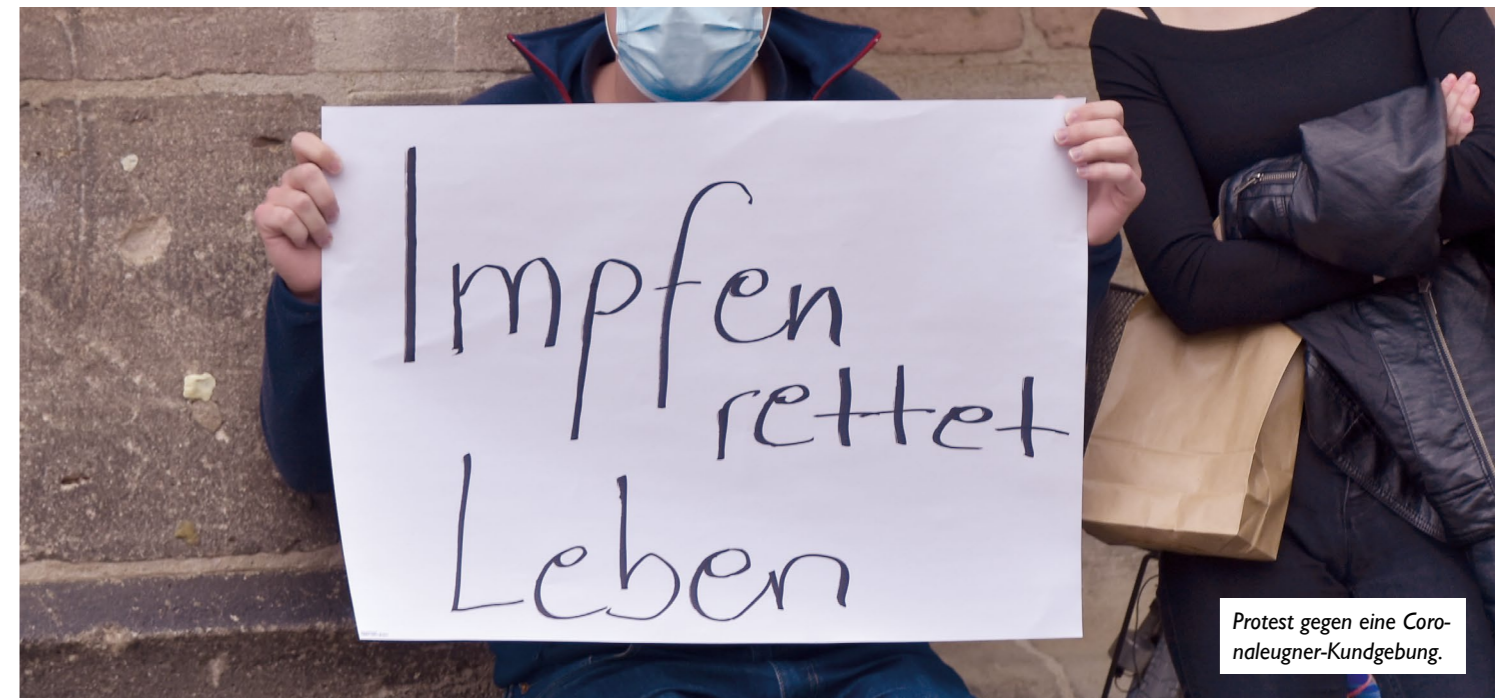 Impfen
rettet
Leben
Protest gegen eine Coro-
naleugner-Kundgebung.